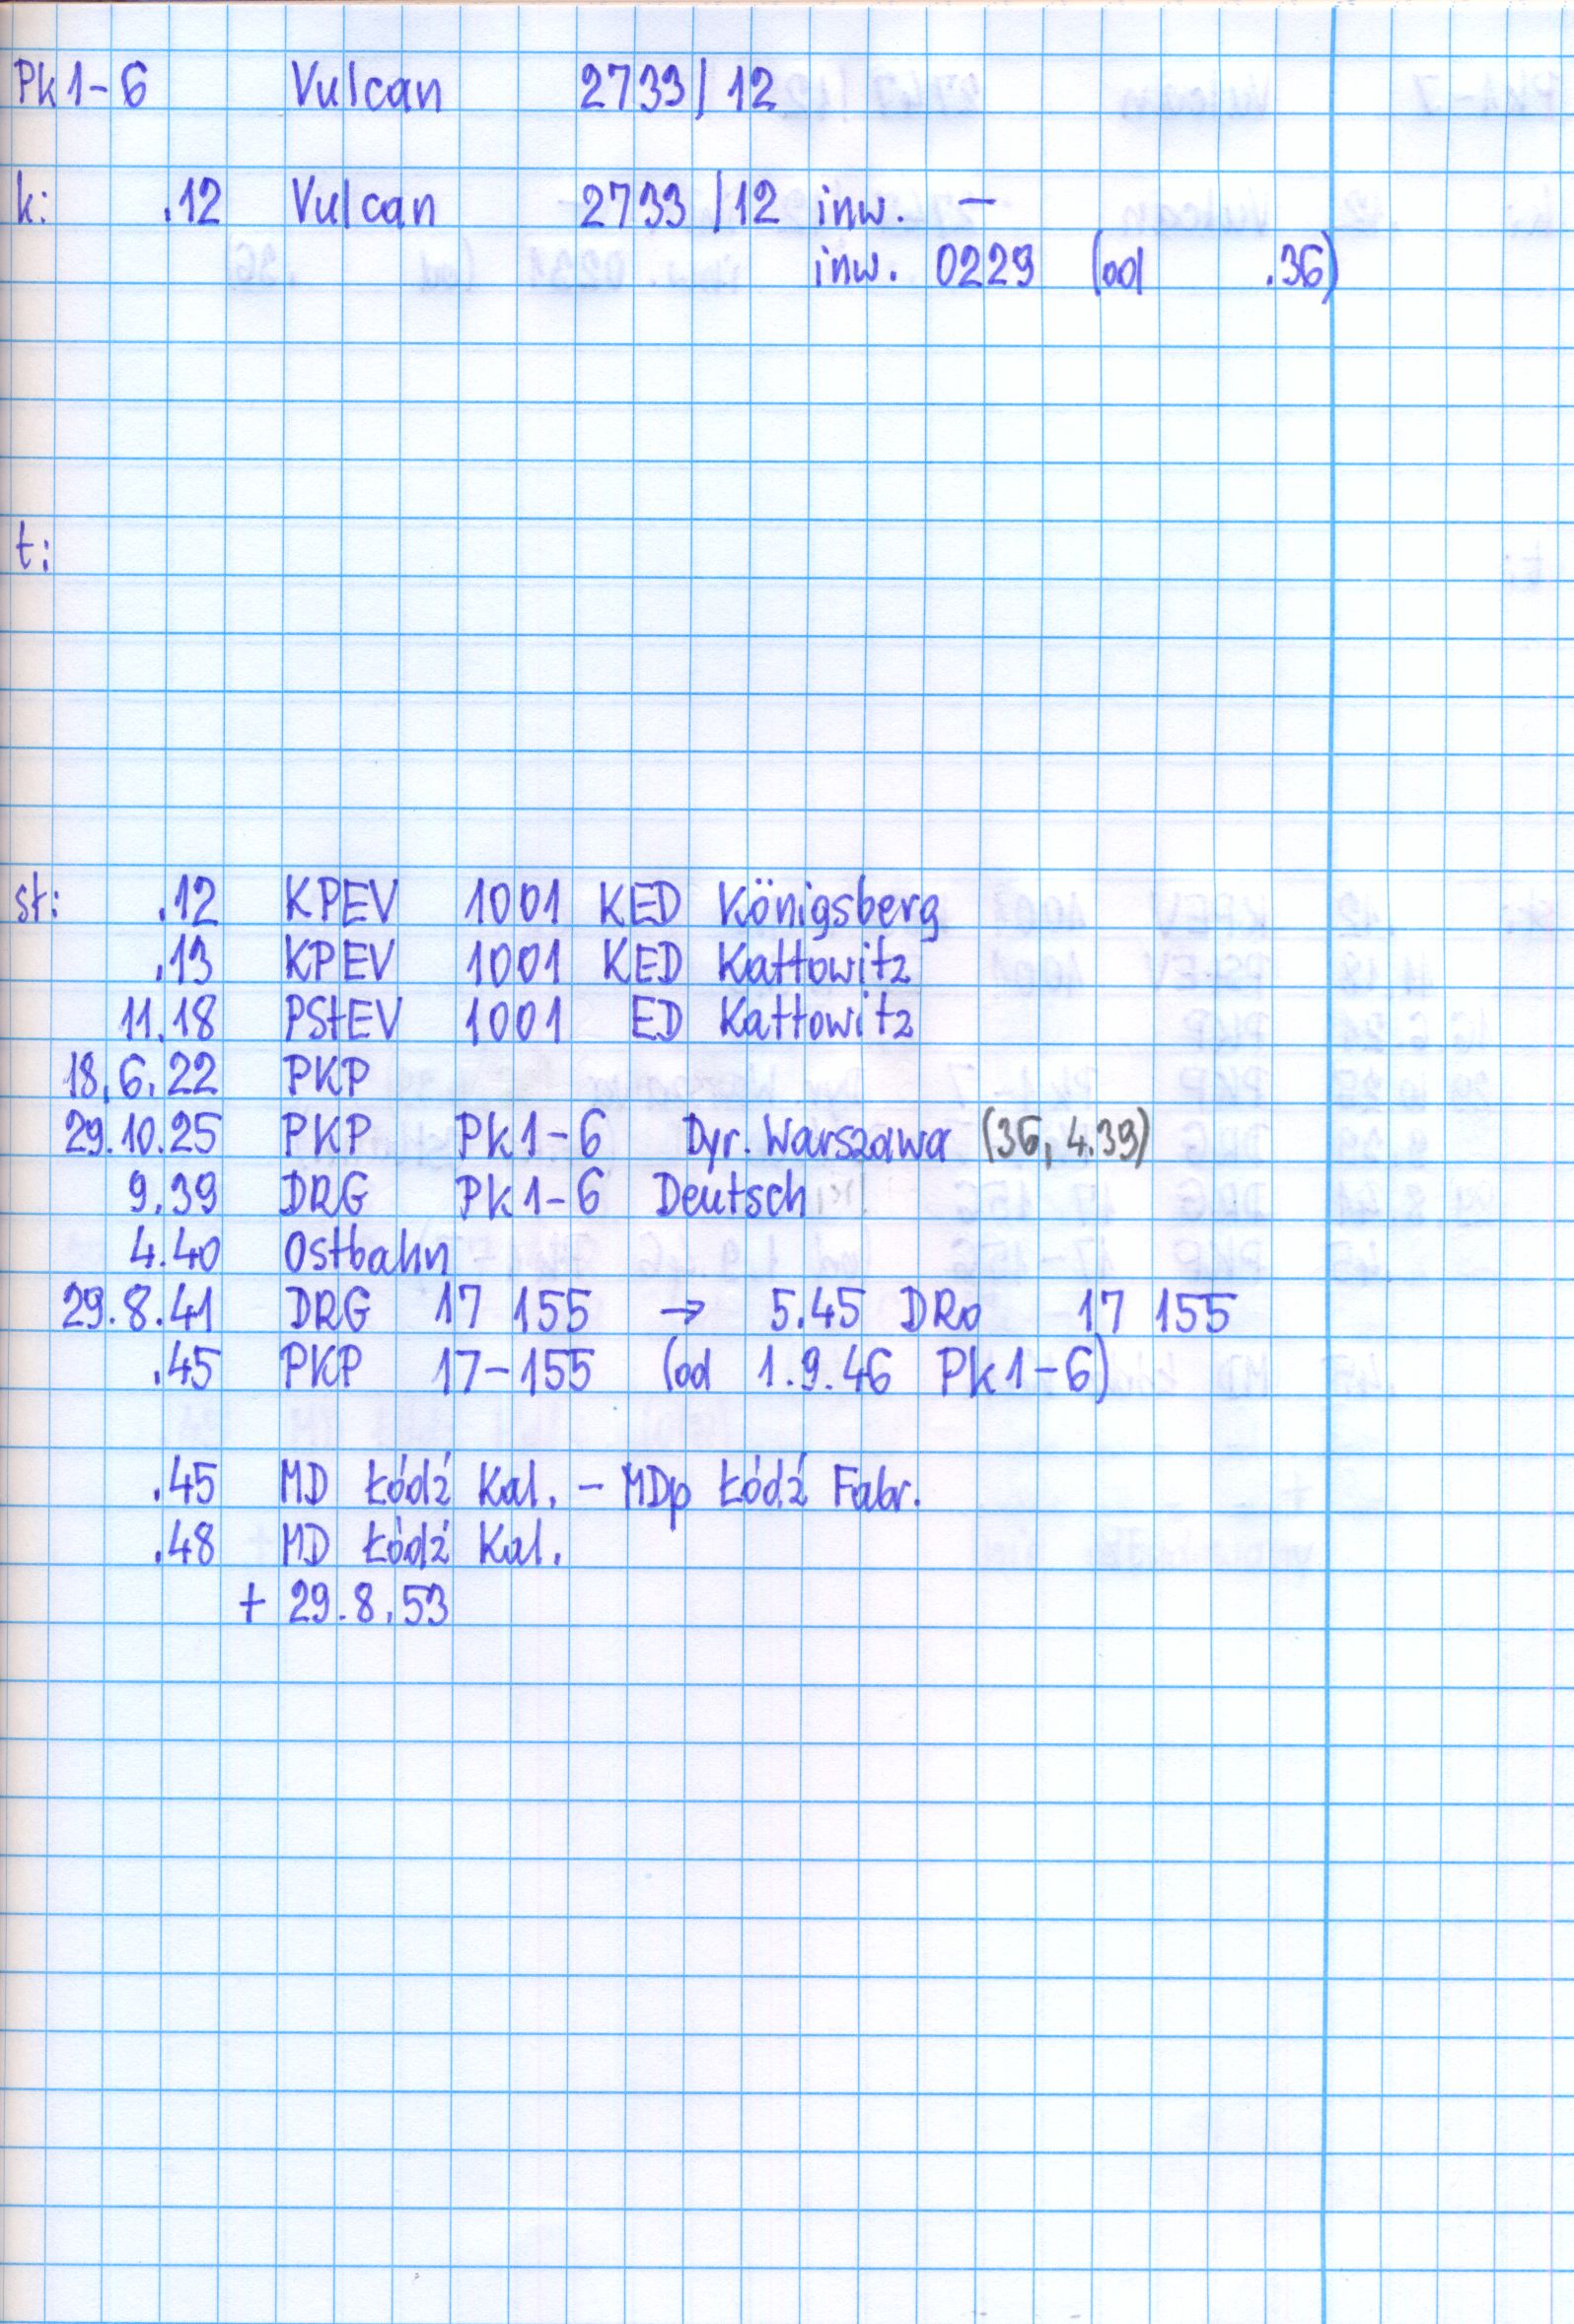 Pk1-6 Vulcan 2733/12
k: .12 Vulcan 2733/12 inw. –
inw. 0229 (od .36)
t:
st: .12 KPEV 1001 KED Königsberg
.13 KPEV 1001 KED Kattowitz
11.18 PStEV 1001 ED Kattowitz
18.6.22 PKP
29.10.25 PKP Pk1-6 Dyr. Warszawa (36, 4.39)
9.39 DRG Pk1-6 Deutsch
4.40 Ostbahn
29.8.41 DRG 17 155 → 5.45 DRo 17 155
.45 PKP 17-155 (od 1.9.46 Pk1-6)
.45 MD Łódź Kal. – MDp Łódź Fabr.
.48 MD Łódź Kal.
+ 29.8.53